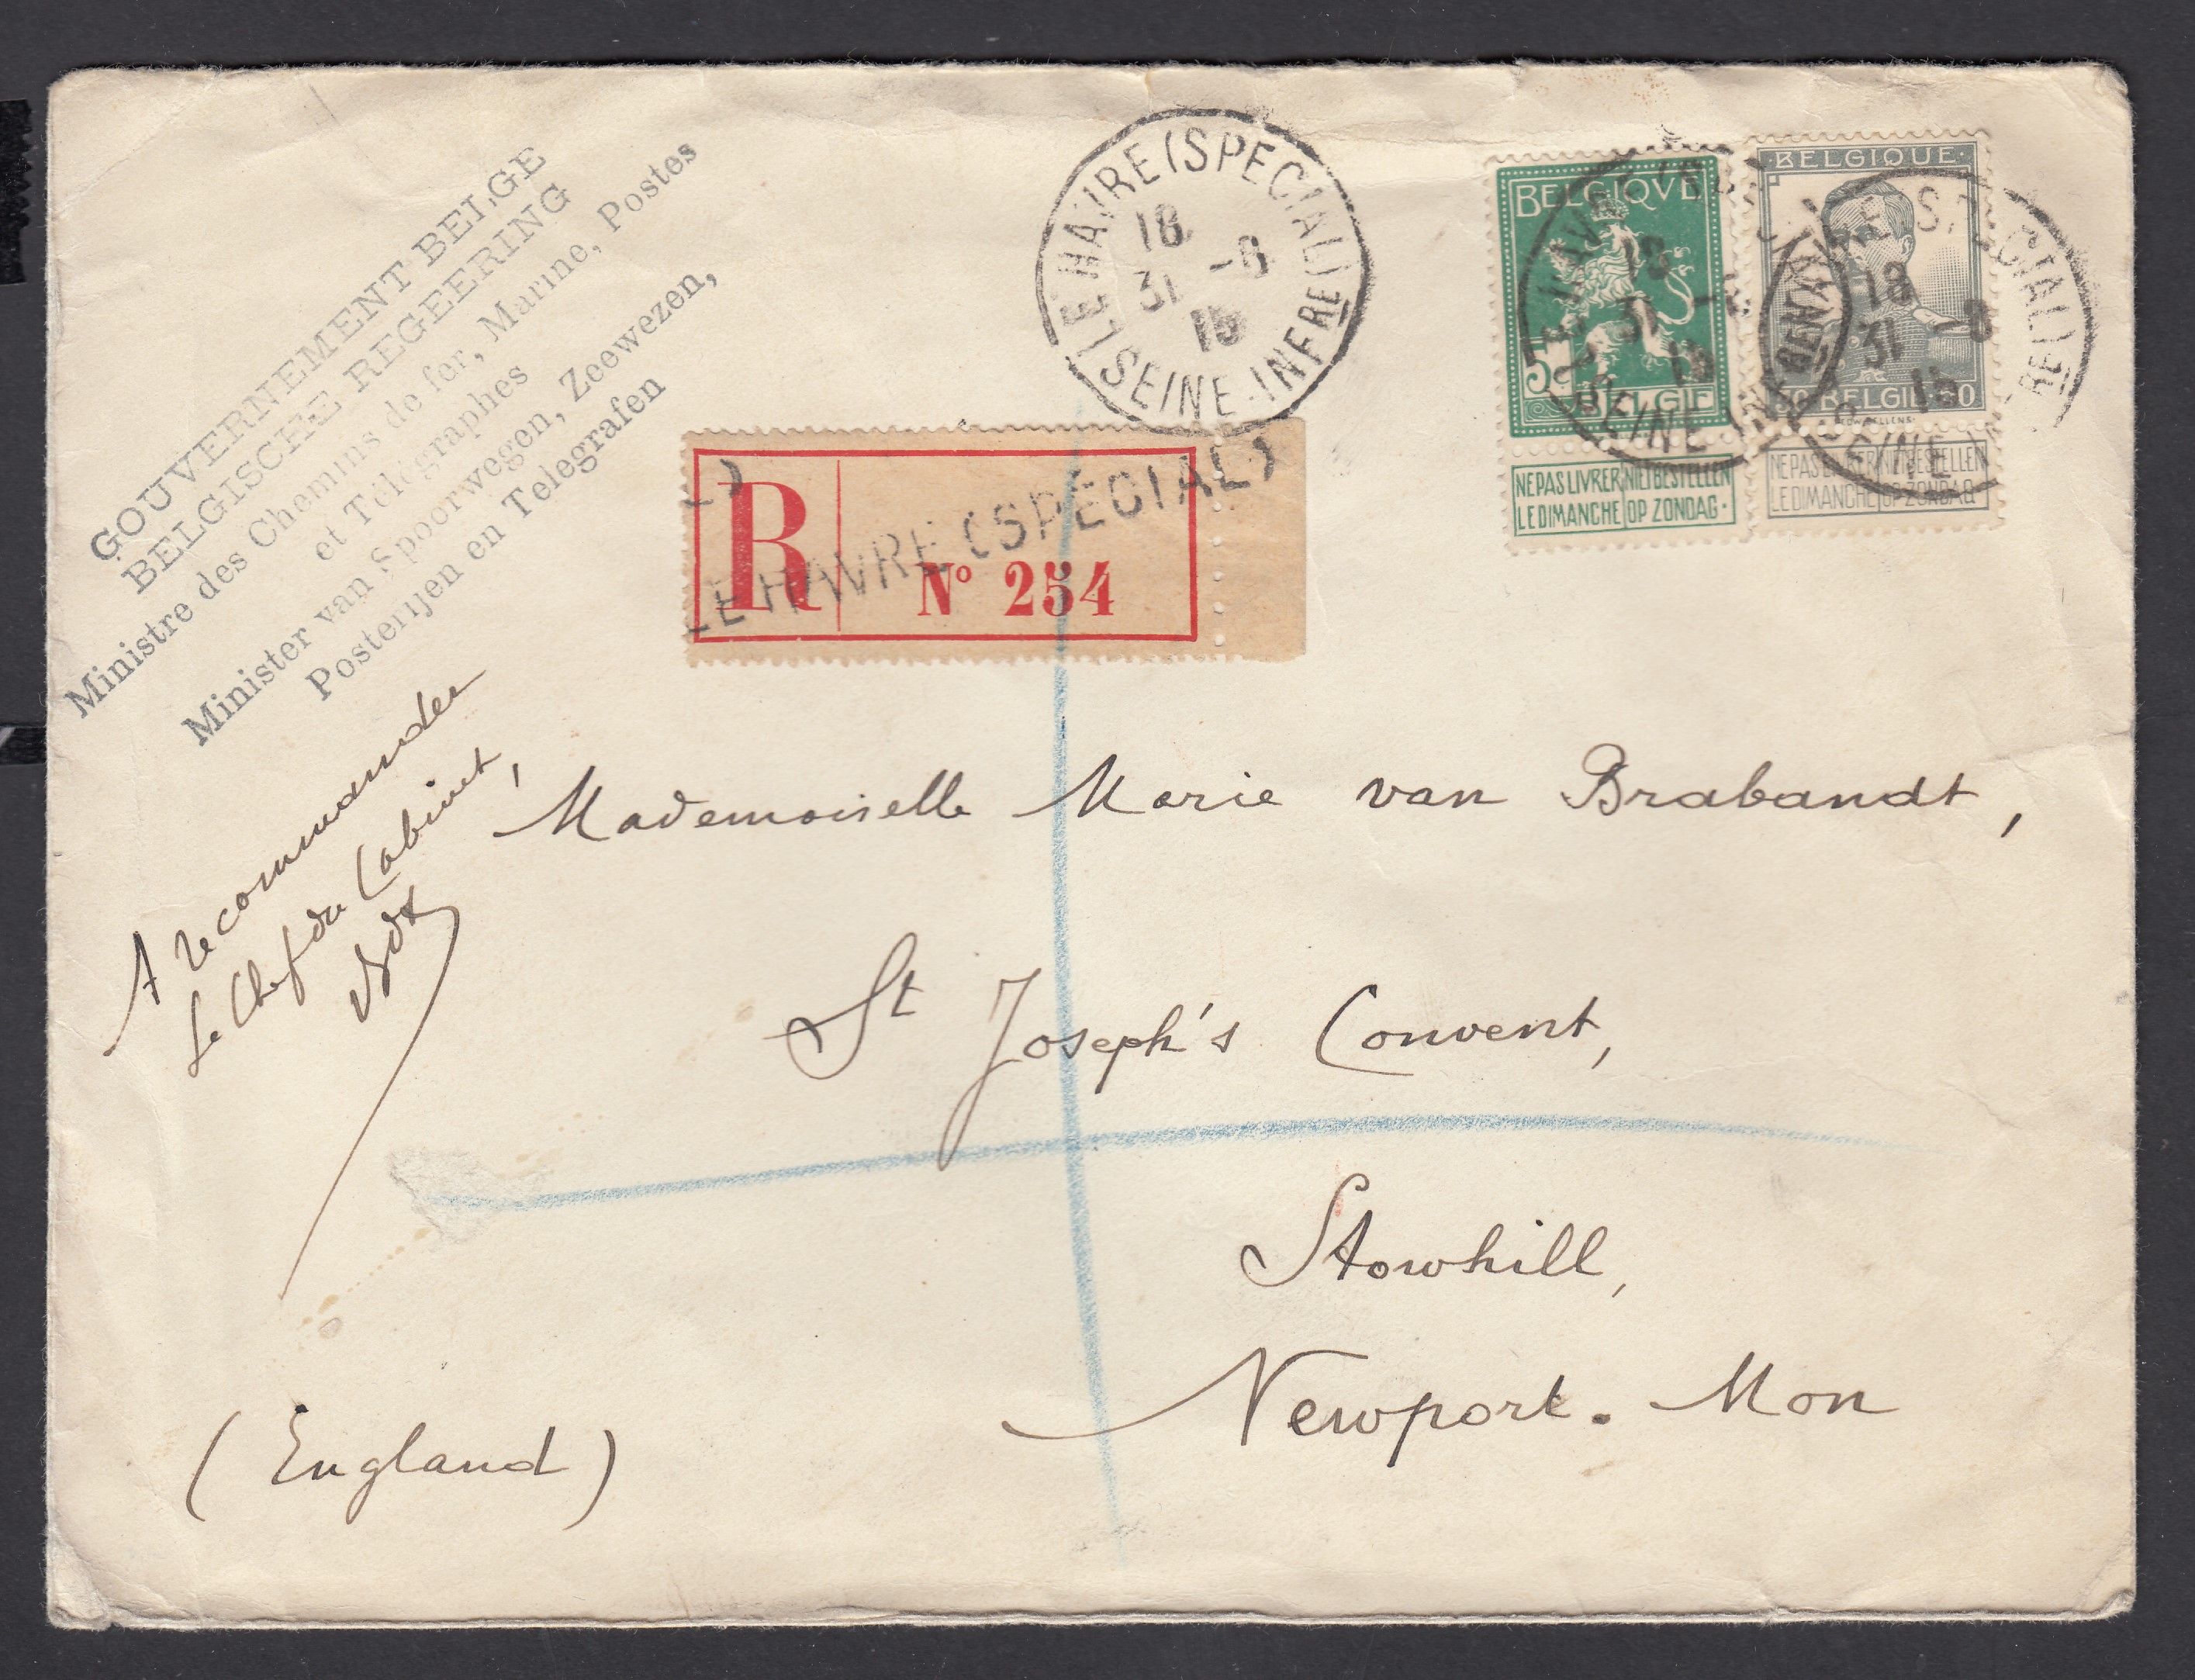 GOUVERNEMENT BELGE
BELGISCHE REGEERING
Ministre des Chemins de fer, Marine, Postes
et Télégraphes
Minister van Spoorwegen, Zeewezen,
Posterijen en Telegrafen
A recommander
Le Chef du Cabinet,
LE HAVRE (SPECIAL)
18
31 -8
15
SEINE-INFRE
BELGIQVE
5
BELGIE
NE PAS LIVRER NIET BESTELLEN
LE DIMANCHE OP ZONDAG.
BELGIQUE
BELGIË
NE PAS LIVRER NIET BESTELLEN
LE DIMANCHE OP ZONDAG
LE HAVRE (SPECIAL)
18
31
15
SEINE
LE HAVRE (SPECIAL)
18
31 -8
15
SEINE
R
LE HAVRE (SPECIAL)
N° 254
Mademoiselle Marie van Brabandt,
St Joseph's Convent,
Stowhill,
Newport. Mon
(England)